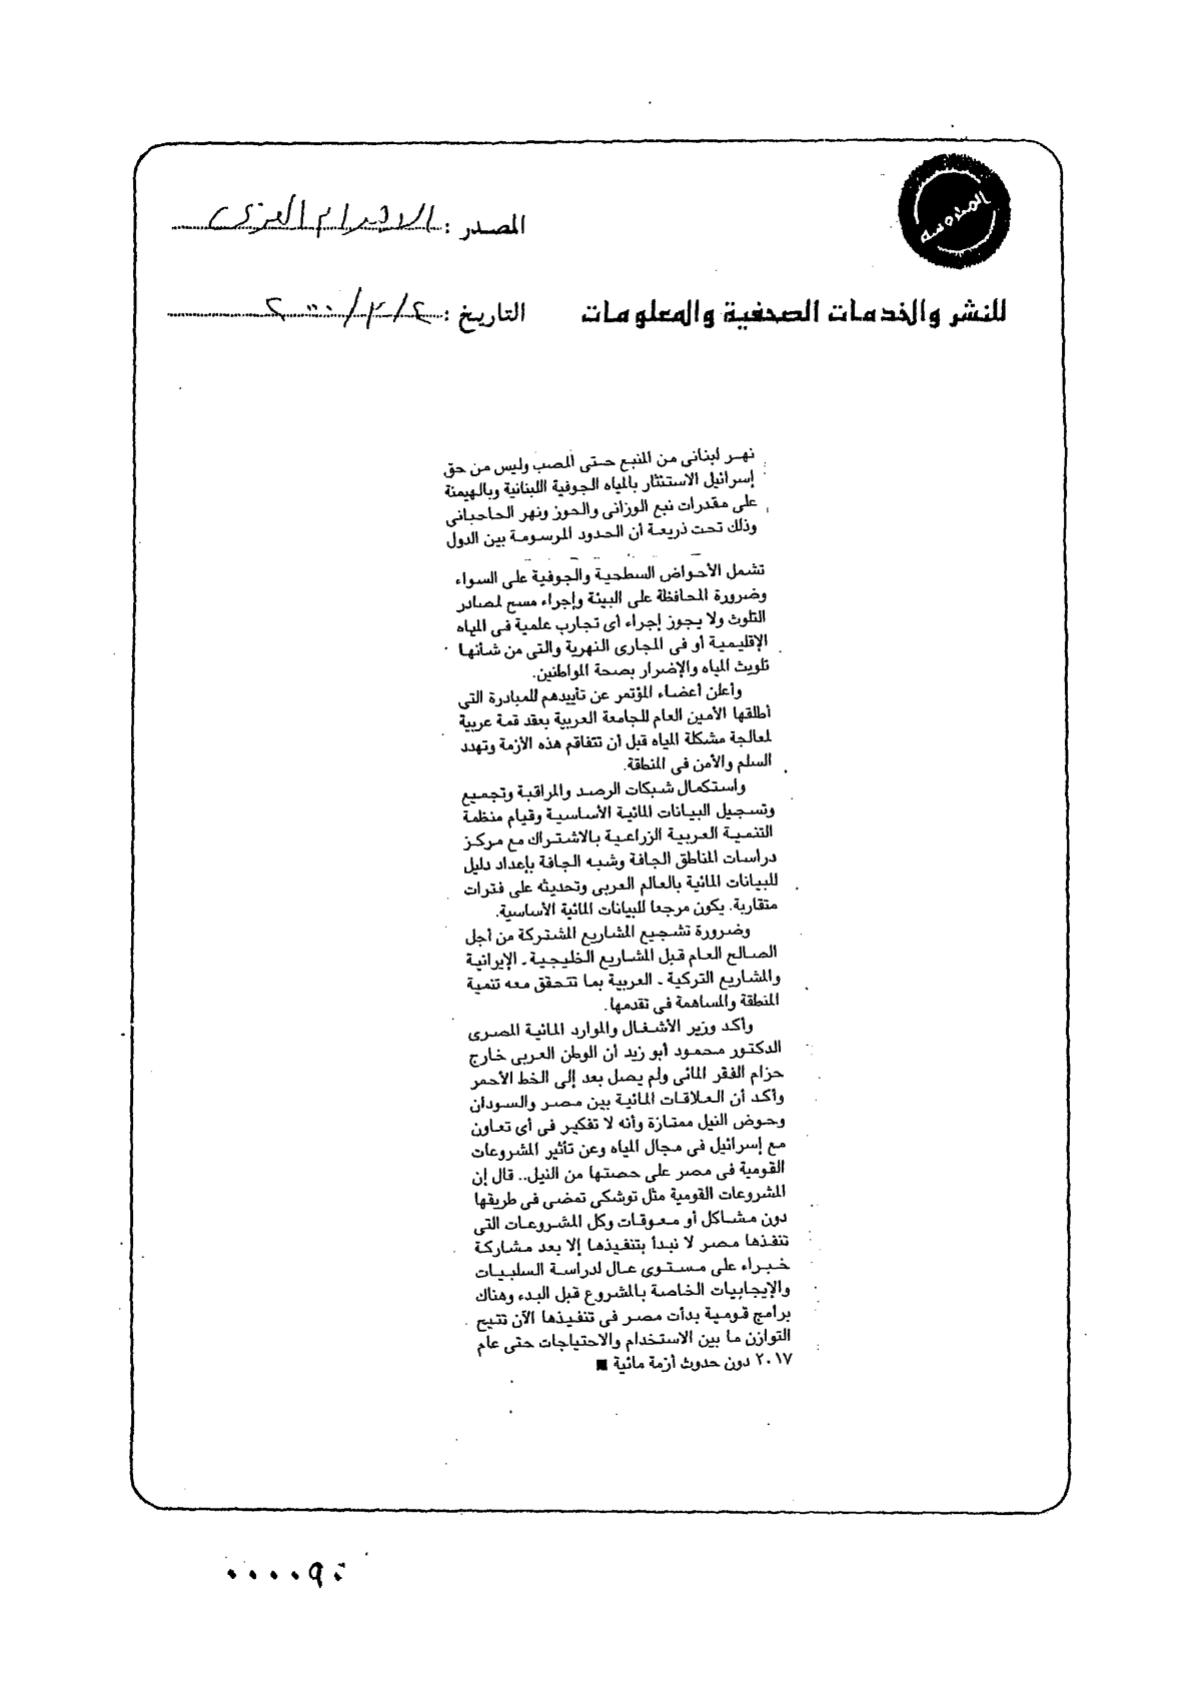 المدروسه
المصدر : الاهرام العربى
للنشر والخدمات الصحفية والمعلومات
التاريخ : ٤/٣/٢٠٠٠
نهر لبنانى من المنبع حتى المصب وليس من حق
إسرائيل الاستئثار بالمياه الجوفية اللبنانية وبالهيمنة
على مقدرات نبع الوزانى والحوز ونهر الحاصبانى
وذلك تحت ذريعة أن الحدود المرسومة بين الدول
تشمل الأحواض السطحية والجوفية على السواء
وضرورة المحافظة على البيئة وإجراء مسح لمصادر
التلوث ولا يجوز إجراء أى تجارب علمية فى المياه
الإقليمية أو فى المجارى النهرية والتى من شأنها
تلويث المياه والإضرار بصحة المواطنين.
وأعلن أعضاء المؤتمر عن تأييدهم للمبادرة التى
أطلقها الأمين العام للجامعة العربية بعقد قمة عربية
لمعالجة مشكلة المياه قبل أن تتفاقم هذه الأزمة وتهدد
السلم والأمن فى المنطقة.
واستكمال شبكات الرصد والمراقبة وتجميع
وتسجيل البيانات المائية الأساسية وقيام منظمة
التنمية العربية الزراعية بالاشتراك مع مركز
دراسات المناطق الجافة وشبه الجافة بإعداد دليل
للبيانات المائية بالعالم العربى وتحديثه على فترات
متقاربة. يكون مرجعا للبيانات المائية الأساسية.
وضرورة تشجيع المشاريع المشتركة من أجل
الصالح العام قبل المشاريع الخليجية ـ الإيرانية
والمشاريع التركية ـ العربية بما تتحقق معه تنمية
المنطقة والمساهمة فى تقدمها.
وأكد وزير الأشغال والموارد المائية المصرى
الدكتور محمود أبو زيد أن الوطن العربى خارج
حزام الفقر المائى ولم يصل بعد إلى الخط الأحمر
وأكد أن العلاقات المائية بين مصر والسودان
وحوض النيل ممتازة وأنه لا تفكير فى أى تعاون
مع إسرائيل فى مجال المياه وعن تأثير المشروعات
القومية فى مصر على حصتها من النيل.. قال إن
المشروعات القومية مثل توشكى تمضى فى طريقها
دون مشاكل أو معوقات وكل المشروعات التى
تنفذها مصر لا نبدأ بتنفيذها إلا بعد مشاركة
خبراء على مستوى عال لدراسة السلبيات
والإيجابيات الخاصة بالمشروع قبل البدء وهناك
برامج قومية بدأت مصر فى تنفيذها الآن تتيح
التوازن ما بين الاستخدام والاحتياجات حتى عام
٢٠١٧ دون حدوث أزمة مائية ■